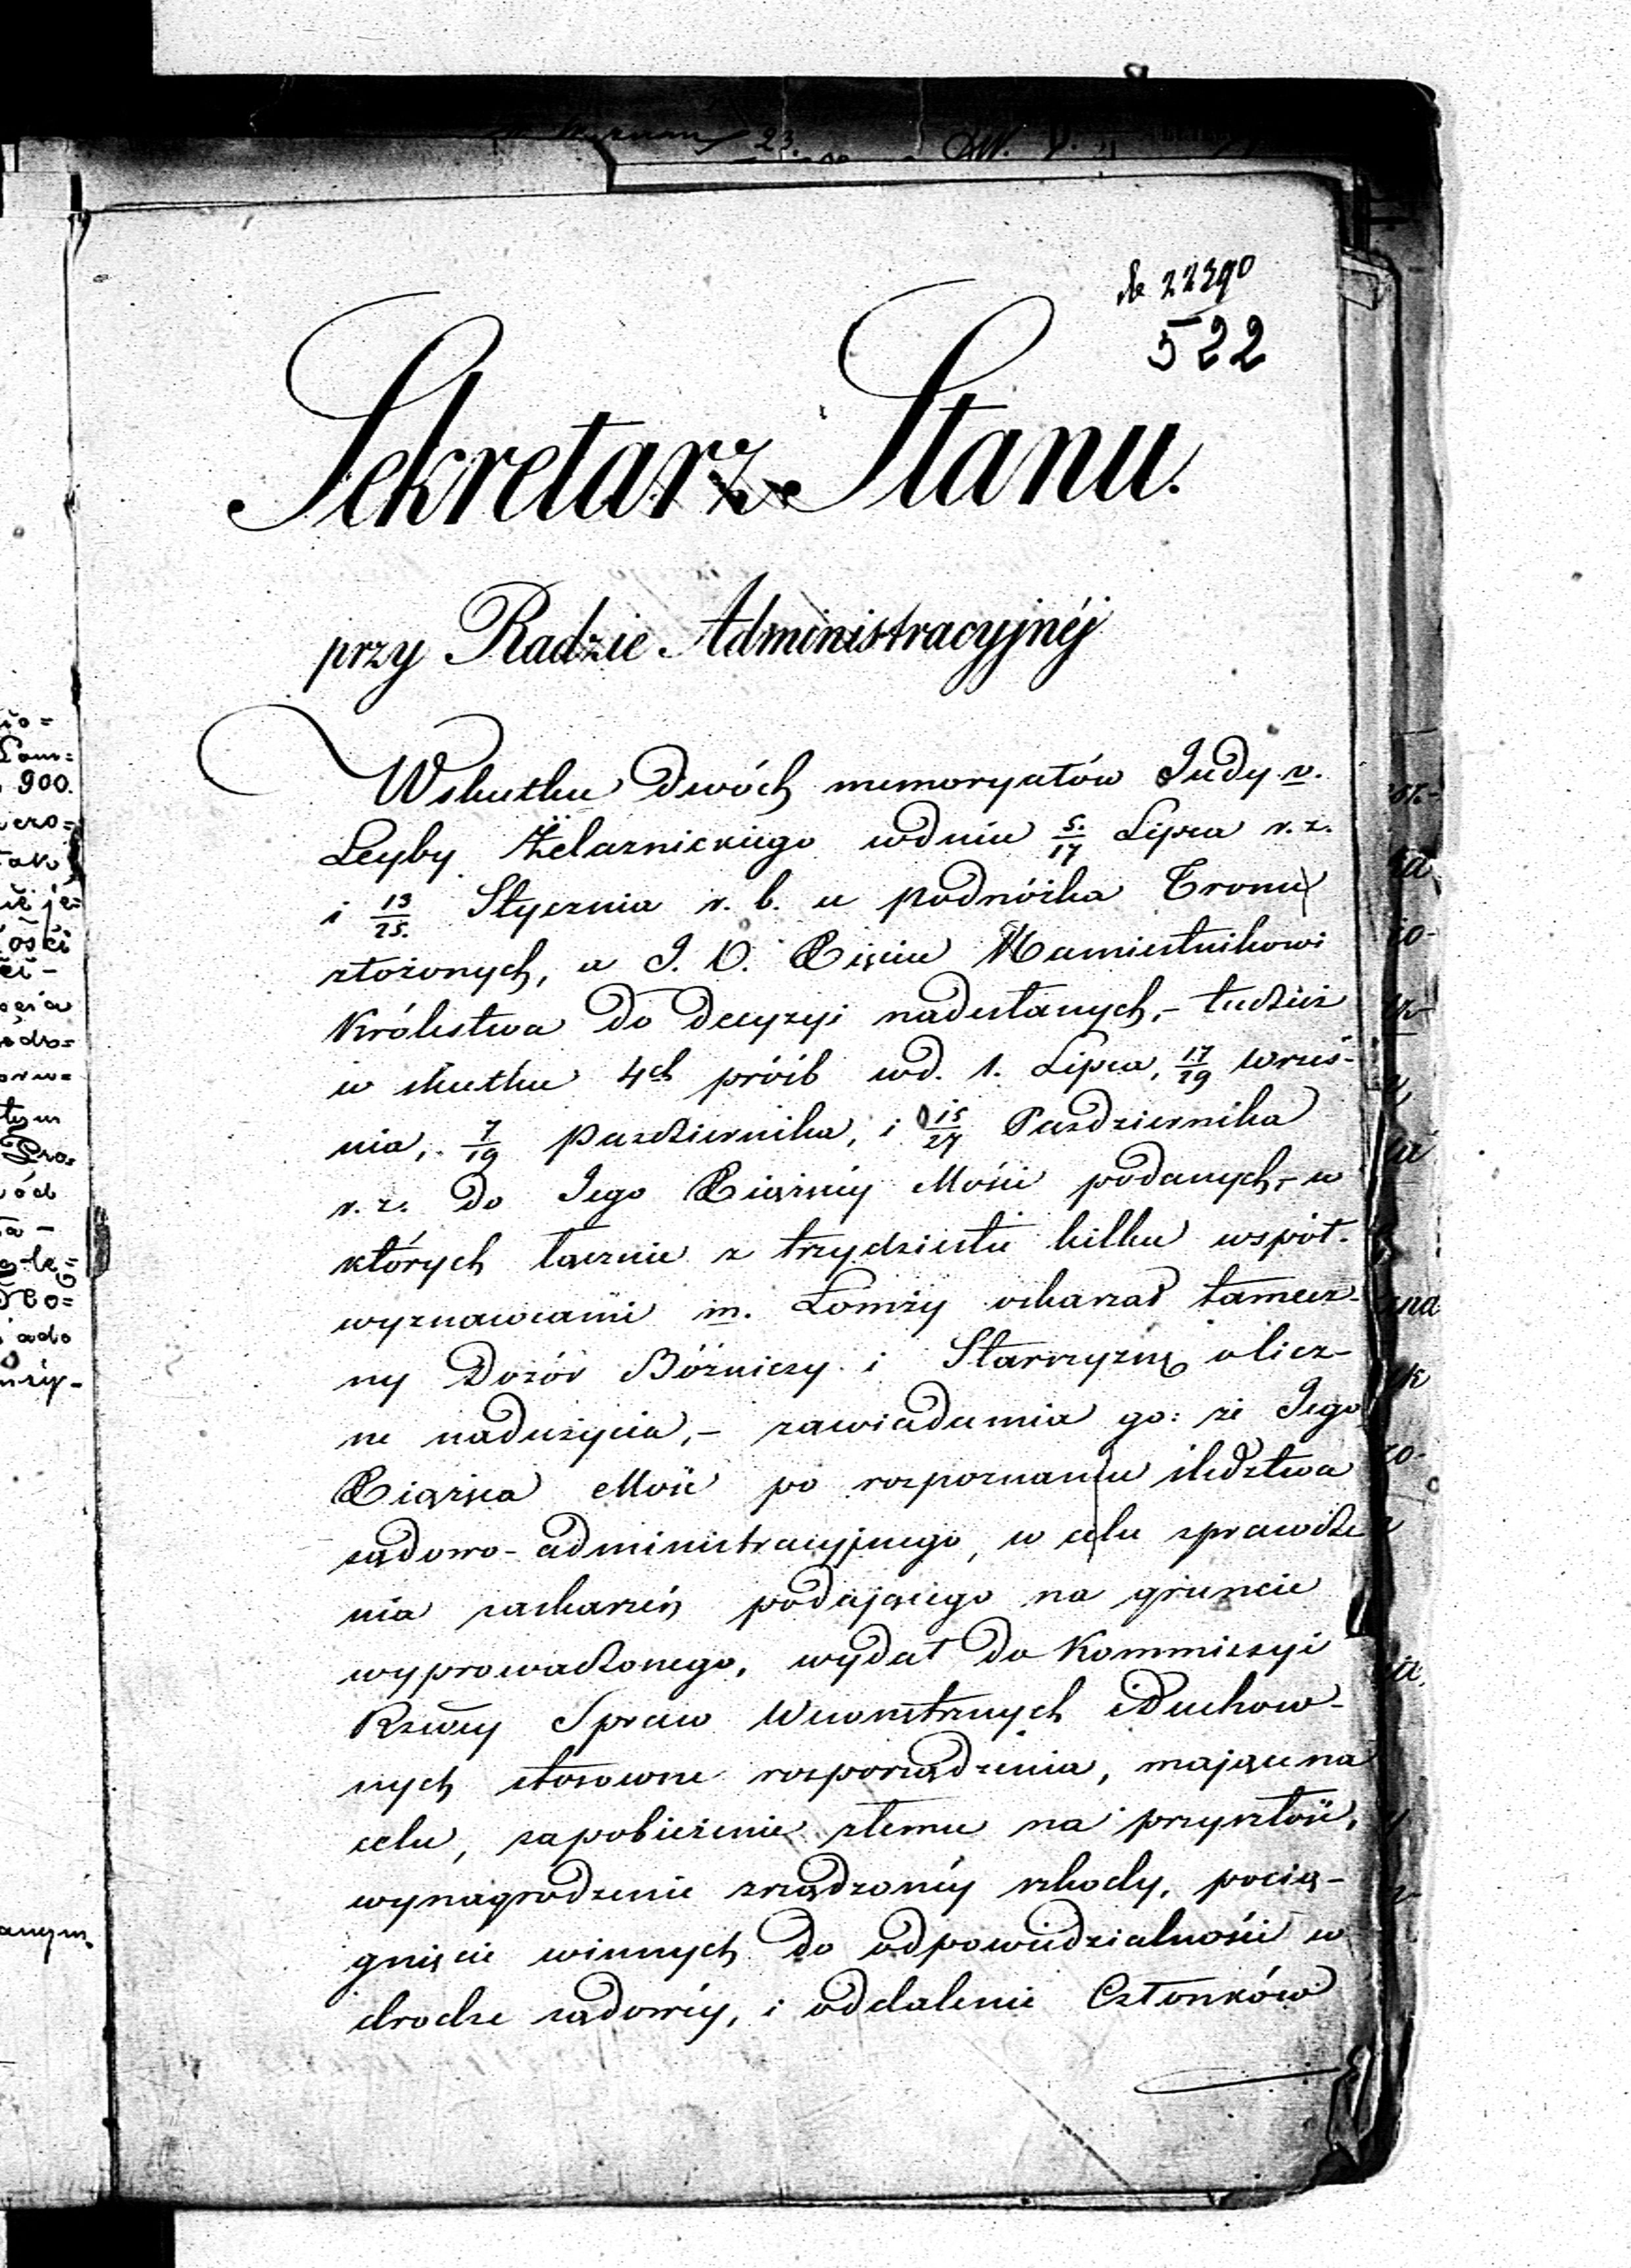 № 22390
522
Sekretarz Stanu.
przy Radzie Administracyjnéj
Wskutku dwóch memoryałów Judy v.
Leyby Żelaznickiego wdniu 5/17 Lipca r. z.
i 13/25 Stycznia r. b. u podnóżka Tronu
złożonych, a J. O. Xięciu Namiestnikowi
Królestwa do decyzyi nadesłanych,- tudzież
w skutku 4ch próśb wd. 1. Lipca, 17/29 Wrześ-
nia, 7/19 Pazdziernika, i 15/27 Pazdziernika
r. z. do Jego Xiążęcéj Mości podanych,- w
których łącznie z trzydziestu kilku współ-
wyznawcami m. Łomży oskarżał tamecz-
ny Dozór Bóżniczy i Starszyznę o licz-
ne nadużycia,- zawiadamia go: że Jego
Xiążęca Mość po rozpoznaniu śledztwa
sądowo-administracyjnego, w celu sprawdze
nia zaskarżeń podającego na gruncie
wyprowadzonego, wydał do Kommissyi
Rządwéy Spraw Wewnętrznych i Duchow-
nych stosowne rozporządzenia, mające na
celu, zapobieżenie złemu na przyszłość,
wynagrodzenie zrządzonéy szkody, pocią-
gnięcie winnych do odpowiedzialności w
drodze sądowéy, i oddalenie Członków